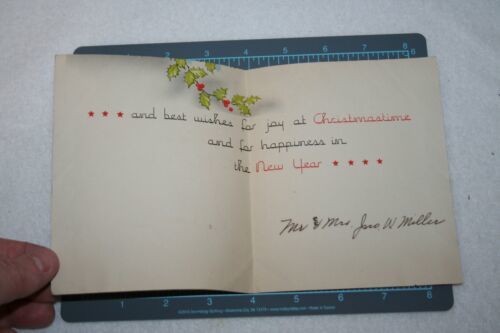 1 2 3 4 5 6 7 8
★ ★ ★ and best wishes for joy at Christmastime
and for happiness in
the New Year ★ ★ ★ ★
Mr & Mrs. Jno. W. Miller
1 2 3 4 5 6 7 8